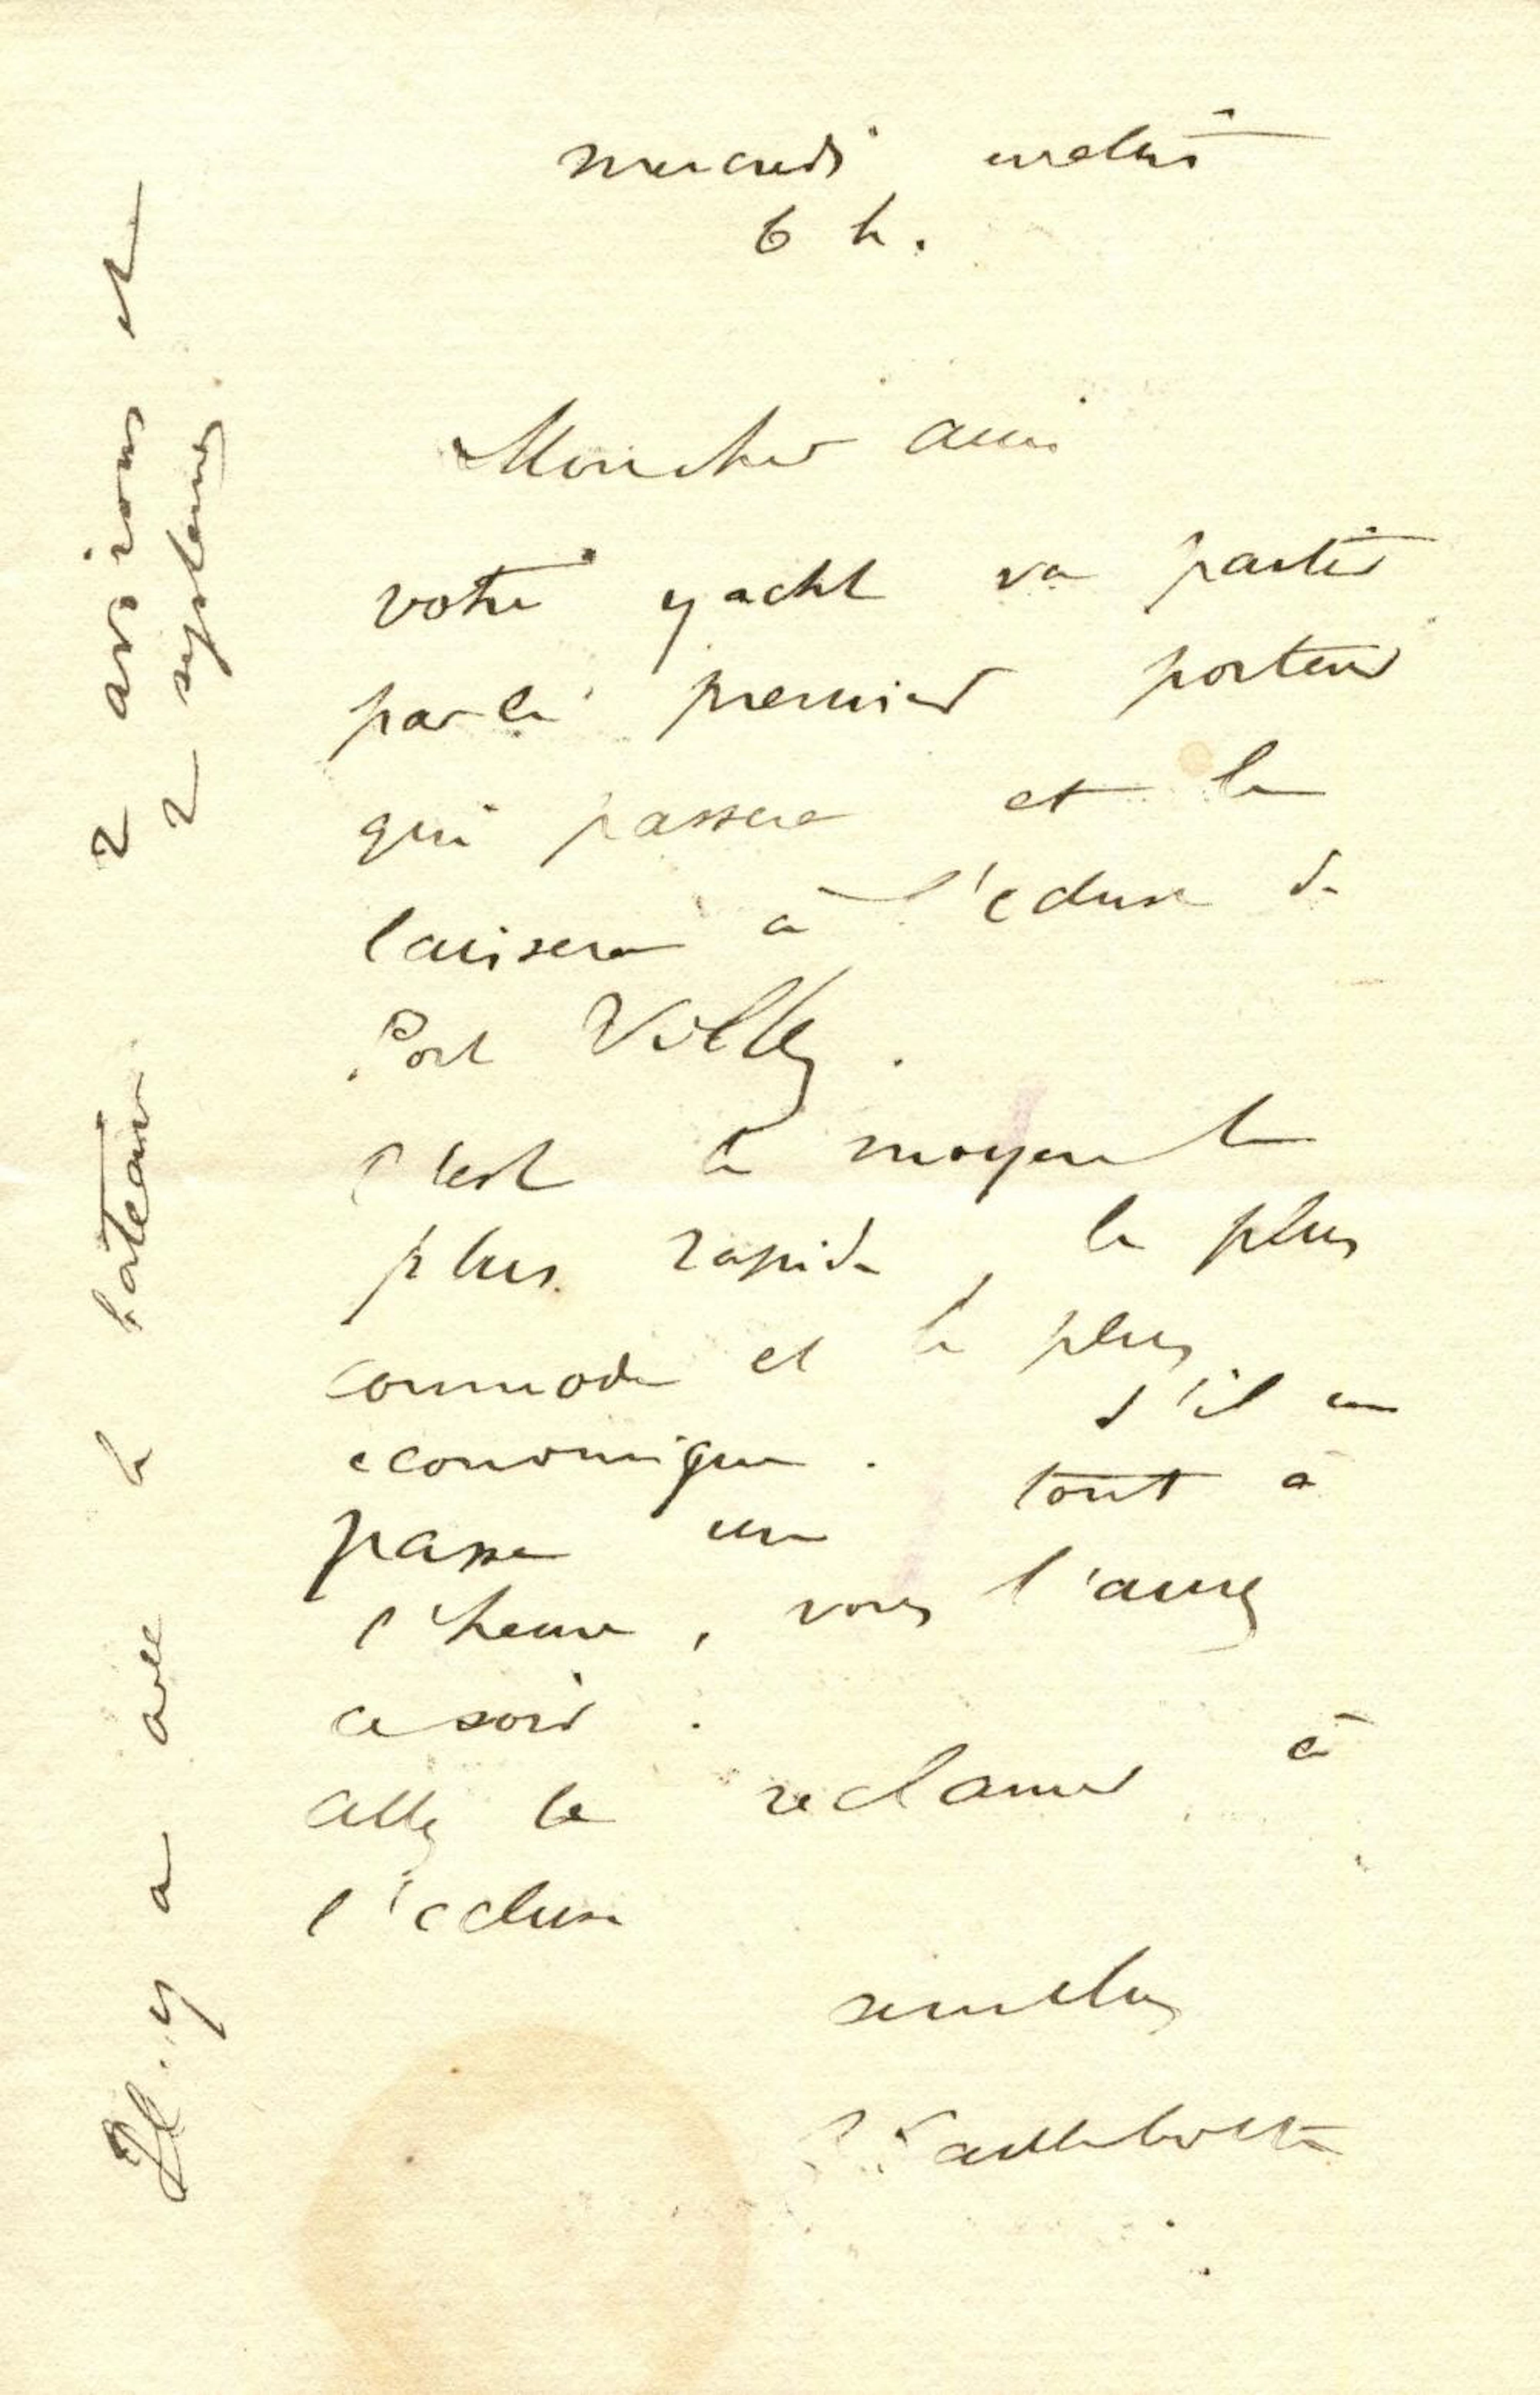 mercredi matin
6 h.
Mon cher ami
votre yacht va partir
par le premier porteur
qui passera et le
laissera à l'écluse de
Port Villez.
C'est le moyen le
plus rapide, le plus
commode et le plus
economique. S'il en
passe un tout à
l'heure, vous l'aurez
ce soir.
allez le reclamer à
l'écluse
Caillebotte
Il y a avec le bateau 2 avirons et
2 systemes